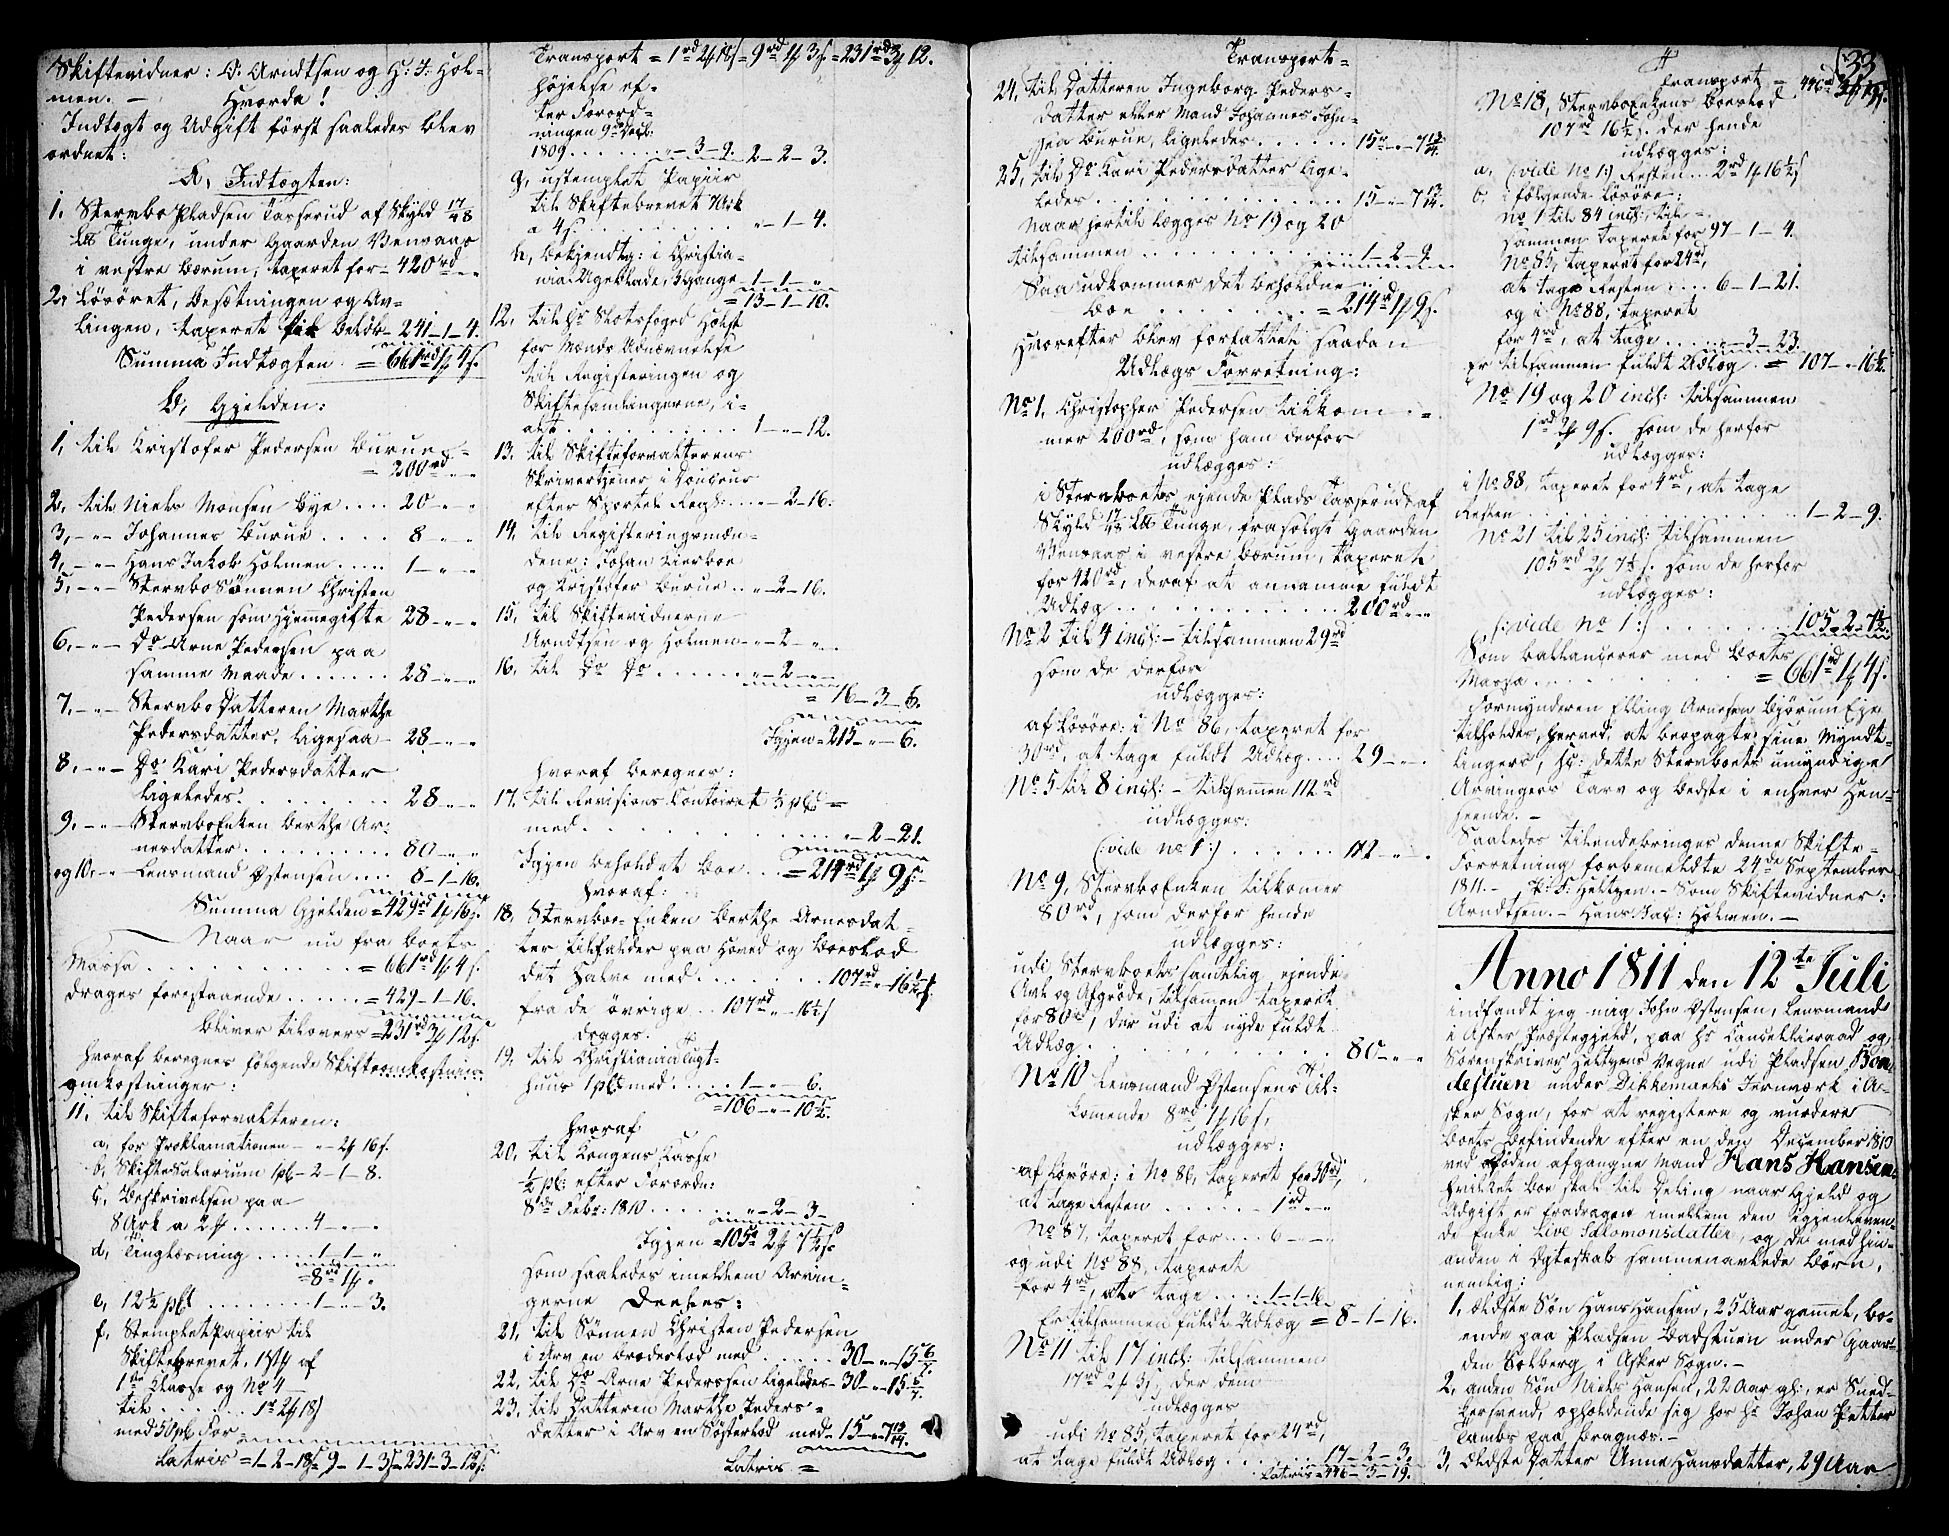 Skiftevidner: O. Arndtsen og H: J: Hol-
men. — Hvorda!
Indtægt og Udgift först saaledes blev
ordnet:
A, Indtægten:
1. Stervbo Pladsen Tasserud af Skyld 17/48
L℔ Tunge, under Gaarden Wensaas
i vestre Bærum, taxeret for = 420rd „ „
2, Lösöret, Besætningen og Av-
lingen, taxeret til Belöb — 241 — 1 — 4.
Summa Indtægten = 661rd 1ʄ 4s.
B, Gjelden:
1, til Kristofer Pedersen Burue
= 200rd „ „
2, til Niels Monsen Bye .... 20 „ „
3, — „ — Johannes Burue ..... 8 „ „
4, — „ — Hans Jakob Holmen ..... 1 — „ „
5, — „ — Stervbo Sönnen Christen
Pedersen som Hjemmegifte 28 — „ „
6, — „ — Do Arne Pedersen paa
samme Maade ....... 28 — „ „
7, — „ — Stervbo Datteren Marthe
Pedersdatter, ligesaa — 28 — „ „
8, — „ — Do Kari Pedersdatter
ligeledes ......... 28 — „ „
9, — „ — StervboEnken Berthe Ar-
nesdatter .......... 80 — „ „
og 10, „ Lensmand Östensen .... 8 — 1 — 16.
Summa Gjelden = 429rd 1ʄ 16s.
Naar nu fra Boets
Massa ........... = 661rd 1ʄ 4s.
drages forestaaende ...... = 429 — 1 — 16.
bliver tilovers = 231rd 3ʄ 12s.
Hvoraf beregnes fölgende Skifteomkostnin-
omkostninger:
11, til Skifteforvalteren:
a, for Proklamationen — „ — 2ʄ 16s.
b, SkifteSalarium 1pCt — 2 — 1 — 8.
c, Beskrivelsen paa
8 Ark a 2ʄ ....... 4 — „ — „
d, Tinglæsning ..... 1 — 1 — „
= 8rd 1ʄ „
e, 12½ pCt ......... 1 — „ — 3.
f, Stemplet Papiir til
Skiftebrevet, 1ste af
1ste Klasse og No 4
til ....... 1rd 2ʄ 18s
med 50 pCt For-
Latris = 1 — 2 — 18s = 9 — 1 — 3s = 231 — 3 — 12s.
Transport = 1rd 2ʄ 18s = 9rd 1ʄ 3s. = 231rd 3ʄ 12.
höjelse ef-
ter Forord-
ningen 9de Decb:
1809 ....... „ — 3 — 9. 2 — 2 — 3.
g, ustemplet Papiir
til Skiftebrevet 7 Ark
a 4s. ............ „ — 1 — 4.
h, Bekjendtg: i Christia-
nia Ugeblade, 3 gange 1 — 1 — „
= 13 — 1 — 10.
12, til Hr Slotsfoged Holst
for Mænds Udnævnelse
til Registeringen og
Skiftesamlingerne, i-
alt ............ 1 — „ — 12.
13, til Skifteforvalterens
Skrivertjener i Douceur
efter Sportel Regl: ... „ — 2 — 16.
14, til Registeringsmæn-
dene: Johan Kierboe
og Kristofer Burue .. „ — 2 — 16.
15, til Skiftevidnerne
Arndtsen og Holmen — „ — 2 — „
16, til Do Do ........ „ — 2 — „
= 16 — 3 — 6.
Igjen = 215 — „ — 6.
Hvoraf beregnes:
17, til Revisions Contoiret ⅓ pCt =
med ............... „ — 2 — 21.
Igjen beholdet Boe .... = 214rd 1ʄ 9s.
Hvoraf:
18, Stervboe-Enken Berthe Arnesdat-
ter tilfalder paa Hoved og Boeslod
det halve med ........ 107rd „ 16½s.
fra de övrige .. 107rd „ 16½s
drages.
19, til Christiania Tugt-
huus 1pCt med ..... 1 — „ — 6.
= 106 — „ — 10½.
Hvoraf
20, til Kongens Kasse
½ pCt: efter Forordn:
8de Febr: 1810 ....... „ — 2 — 3
Igjen = 105rd 2ʄ 7½s.
som saaledes imellem Arvin-
gerne Deeles:
21, til Sönnen Christen Pedersen
i Arv en Brodeslod med ..... 30 — „ — 15 6/7.
22, til Do Arne Pederssen ligeledes — 30 — „ — 15 6/7.
23, til Datteren Marthe Peders-
datter i Arv en Söstelod med — 15 — „ — 7 13/14.
Latris =
Transport =
24, til Datteren Ingeborg Peders-
datter eller Mand Johannes John-
sen Burue, ligeledes ...... 15rd — „ — 7 13/14.
25, til Do Kari Pedersdatter lige-
ledes ............. 15 — „ — 7 13/14.
Naar hertil lægges No 19 og 20
tilsammen ............. 1 — 2 — 9.
Saa udkommer det beholdne
Boe .............. = 214rd 1ʄ 9s.
Hvorefter blev forfattet saadan
Udlægs Forretning:
No 1, Christopher Pedersen tilkom-
mer 200rd, som ham derfor
udlægges:
i Stervboets ejende Plads Tasserud af
Skyld 17/48 L℔ Tunge, fra solgt Gaarden
Wensaas i vestre Bærum, taxeret
for 420rd, deraf at annamme fuldt
Udlæg .............. 200rd „ „
No 2 til 4 incl: — tilsammen 29rd
som de derfor
udlægges:
af Lösöre: i No 86, taxeret for
30rd, at tage fuldt Udlæg .... 29 — „ „
No 5 til 8 incl: — tilsamen 112rd
udlægges:
(: vide No 1 :) ....... 112 — „ — „
No 9, StervboEnken tilkomer
80rd, som derfor hende
udlægges:
udi Stervboets samtlig ejende
Avl og Afgröde, tilsamen taxeret
for 80rd, der udi at nyde fuldt
Udlæg ............. 80 — „ — „
No 10 Lensmand Östensens Til-
komende 8rd 1ʄ 16s,
udlægges:
af Lösöre: i No 86, taxeret for 30rd,
at tage Resten ....... 1rd — „ — „
No 87, taxeret for .... 6 — „ — „
og udi No 88, taxeret
for 4rd, at tage ..... 1 — 1 — 16
Er tilsammen fuldt Udlæg = 8 — 1 — 16.
No 11 til 17 incl: tilsammen
17rd 2ʄ 3s, der dem
udlægges
udi No 85, taxeret for 24rd,
at tage fuldt Udlæg ....... 17 — 2 — 3.
Latris = 446 — 3 — 19.
33
Transport — 446rd 3ʄ 19s.
No 18, StervboEnkens Boeslod
107rd 16½s. der hende
udlægges:
a, (: vide No 1 :) Resten .. 2rd 1ʄ 16½s
b, i fölgende Lösöre:
No 1 til 84 incl:, til-
sammen taxeret for 97 — 1 — 4.
No 85, taxeret for 24rd,
at tage Resten .... 6 — 1 — 21.
og i No 88, taxeret
for 4rd, at tage ..... „ — 3 — 23.
Er tilsammen fuldt Udlæg . = 107 — „ 16½.
No 19 og 20 incl: tilsammen
1rd 2ʄ 9s. som de herfor
udlægges:
i No 88, taxeret for 4rd, at tage
Resten ................ 1 — 2 — 9.
No 21 til 25 incl: tilsammen
105rd 2ʄ 7½s. som de herfor
udlægges:
(: vide No 1 :) ....... 105 — 2 — 7½.
Som ballancerer med Boets
Massa ............ = 661rd 1ʄ 4s.
Formynderen Elling Arnesen Bjørum Eje
tilholdes, herved, at beopagte sine Myndt-
lingers, Hs: dette Stervboets umyndige
Arvingers Tarv og Bedste i enhver Hen-
seende. —
Saaledes tilendebringes denne Skifte-
Forretning forbemeldte 24de September
1811. — Heltzen. — Som Skiftevidner:
Arndtsen. — Hans Jac: Holmen. —
Anno 1811 den 12te Juli
indfandt jeg mig John Östensen, Lensmand
i Asker Præstegjeld, paa Hr Kancelliraad og
Sorenskriver Heltzens Vegne udi Pladsen Bon-
destuen under Dikkemarks Jernværk i A-
sker Sogn, for at registere og vurdere
Boets Befindende efter en den December 1810
ved Döden afgangne Mand Hans Hansen
hvilket Boe skal til Deling naar Gjeld og
Udgift er fradragen imellem den igjenleven-
de Enke Live Salomonsdatter, og de med hin-
anden i Egteskab sammenavlede Börn,
nemlig:
1, Ældste Sön Hans Hansen, 25 Aar gammel, bo-
ende paa Pladsen Badstuen under Gaar-
den Solberg i Asker Sogn. —
2, anden Sön Niels Hansen, 22 Aar gl:, er Sned-
kersvend, opholdende sig hos Hr Johan Petter
Tambs paa Bragnæs. —
3, Ældste Datter Anne Hansdatter, 29 Aar